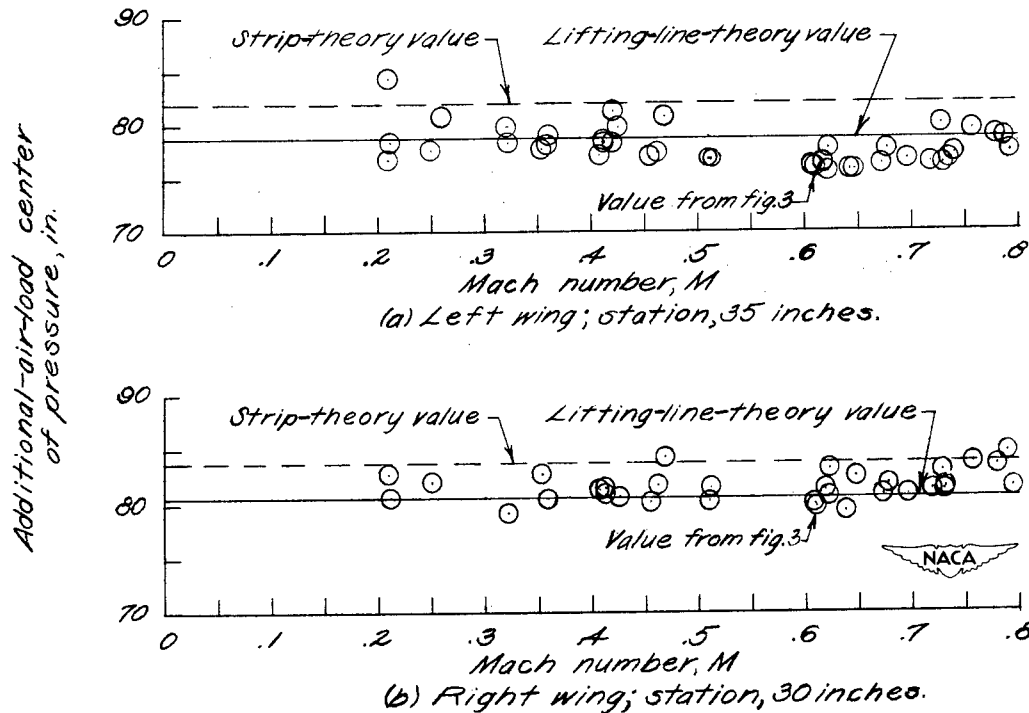 Additional-air-load center
of pressure, in.
90
80
70
Strip-theory value
Lifting-line-theory value
Value from fig. 3
0 .1 .2 .3 .4 .5 .6 .7 .8
Mach number, M
(a) Left wing; station, 35 inches.
90
80
70
Strip-theory value
Lifting-line-theory value
Value from fig. 3
NACA
0 .1 .2 .3 .4 .5 .6 .7 .8
Mach number, M
(b) Right wing; station, 30 inches.